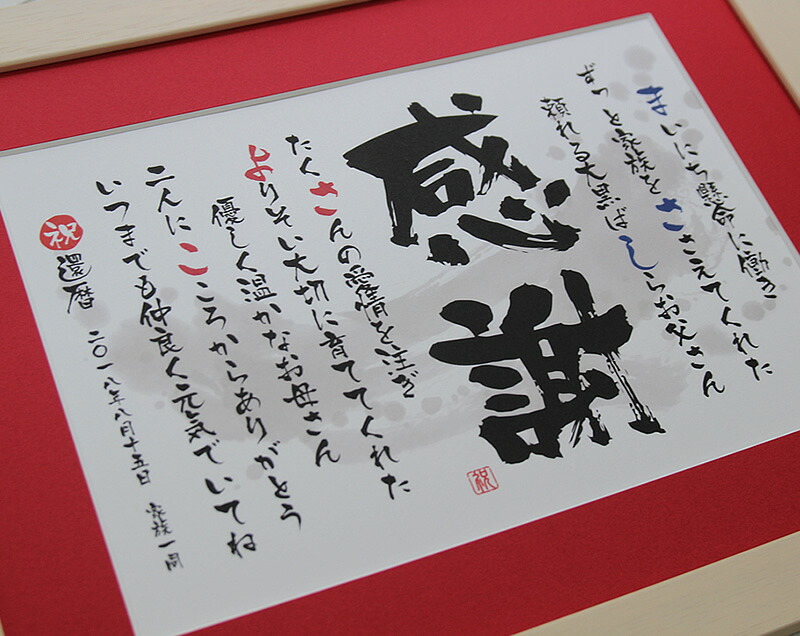 まいにち懸命に働き
ずっと家族をささえてくれた
頼れる大黒ばしらお父さん
感謝
祝
たくさんの愛情を注ぎ
よりそい大切に育ててくれた
優しく温かなお母さん
二人にこころからありがとう
いつまでも仲良く元気でいてね
祝 還暦 二〇一八年八月十五日 家族一同